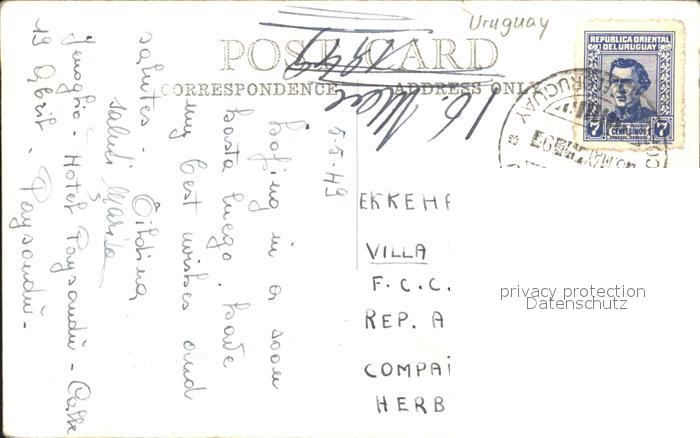 Uruguay
POST CARD
CORRESPONDENCE
ADDRESS ONLY
REPUBLICA ORIENTAL
DEL URUGUAY
7 CENTESIMOS 7
URUGUAY
16. Mai
1949
5-5-49
Hoping in a soon
hasta luego. have
my best wishes and
salutes. Tildina
saluti Marisa
Jenoglio - Hotel Paysandú - Calle
19 Abril. Paysandú -
EKKEHA
VILLA
F. C. C.
REP. A
COMPAÑ
HERB
privacy protection
Datenschutz